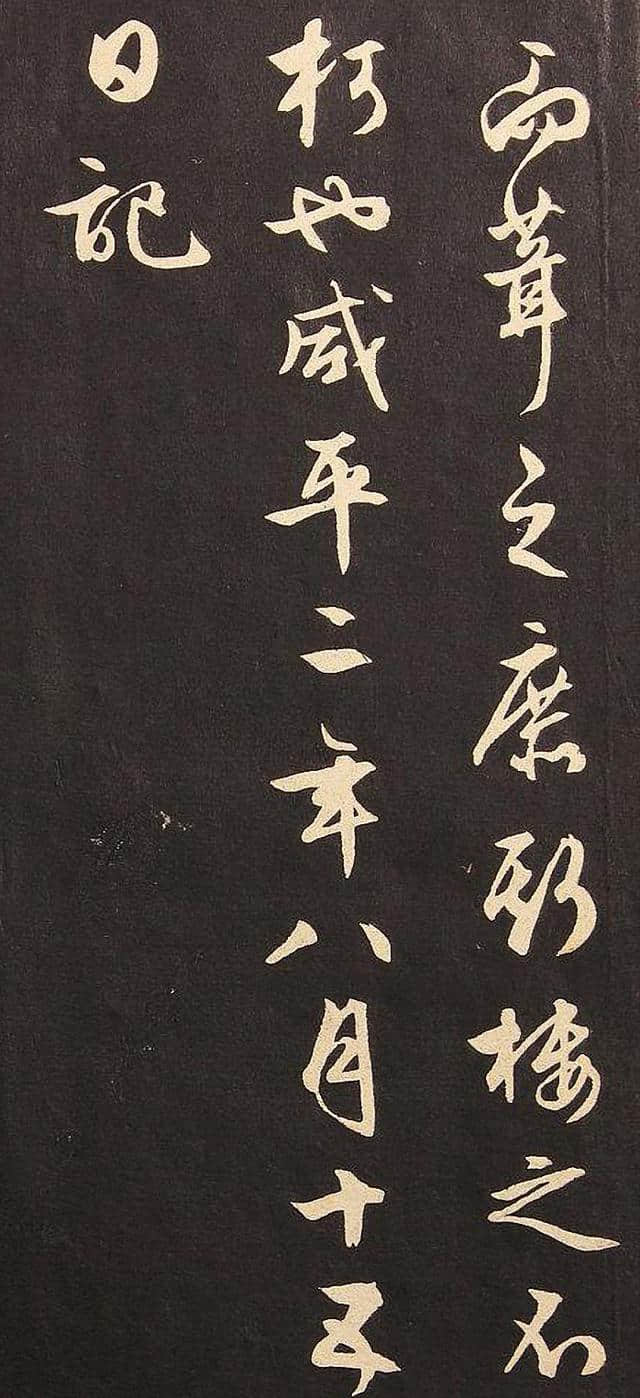 而葺之庶斯樓之不
朽也咸平二年八月十五
日記